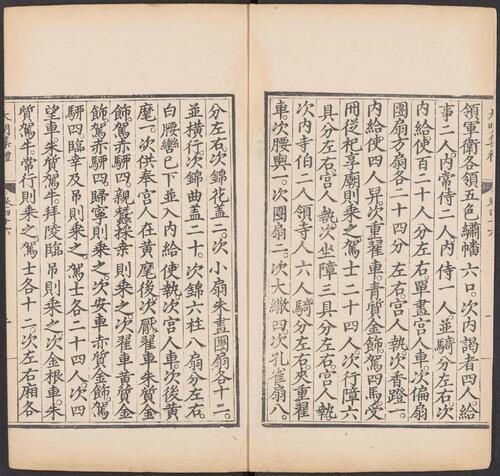 大明集禮
領軍衛各領五色繡幡六口。次内謁者四人。給
事二人内常侍二人。内侍一人。並騎分左右。次
内給使百二十人。分左右。單盡宮人車。次偏扇
團扇方扇各二十四。分左右。宮人執。次香蹬一。
内給使四人舁。次重翟車。青質金飾。駕四馬。受
冊從祀享廟則乘之。駕士二十四人。次行障六
具。分左右。宮人執。次坐障三具。分左右。宮人執。
次内寺伯二人。領寺人六人。騎分左右。夾重翟
車。次腰輿一。次團扇二。次大繖四。次孔雀扇八。
分左右。次錦花蓋二。次小扇朱畫團扇各十二。
並横行。次錦曲蓋二十。次錦六柱八扇。分左右。
白腰轝已下並入内給使執。次宮人車。次後黄
麾一。次供奉宮人在黄麾後。次厭翟車。朱質金
飾。駕赤駵四。親蠶採桑則乘之。次翟車。黄質金
飾。駕赤駵四。歸寧則乘之。次安車。赤質金飾。駕
駵四。臨幸及吊則乘之。駕士各二十四人。次四
望車。朱質駕牛。拜陵臨吊則乘之。次金根車。朱
質駕牛。常行則乘之。駕士各十二。次左右廂各
大明集禮